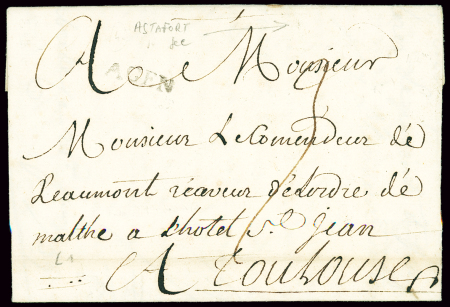 ASTAFORT
A Monsieur
AGEN
Monsieur Le Comendeur de
Beaumont réceveur de Lordre dé
malthe a Lhotel St Jean
A Toulouse